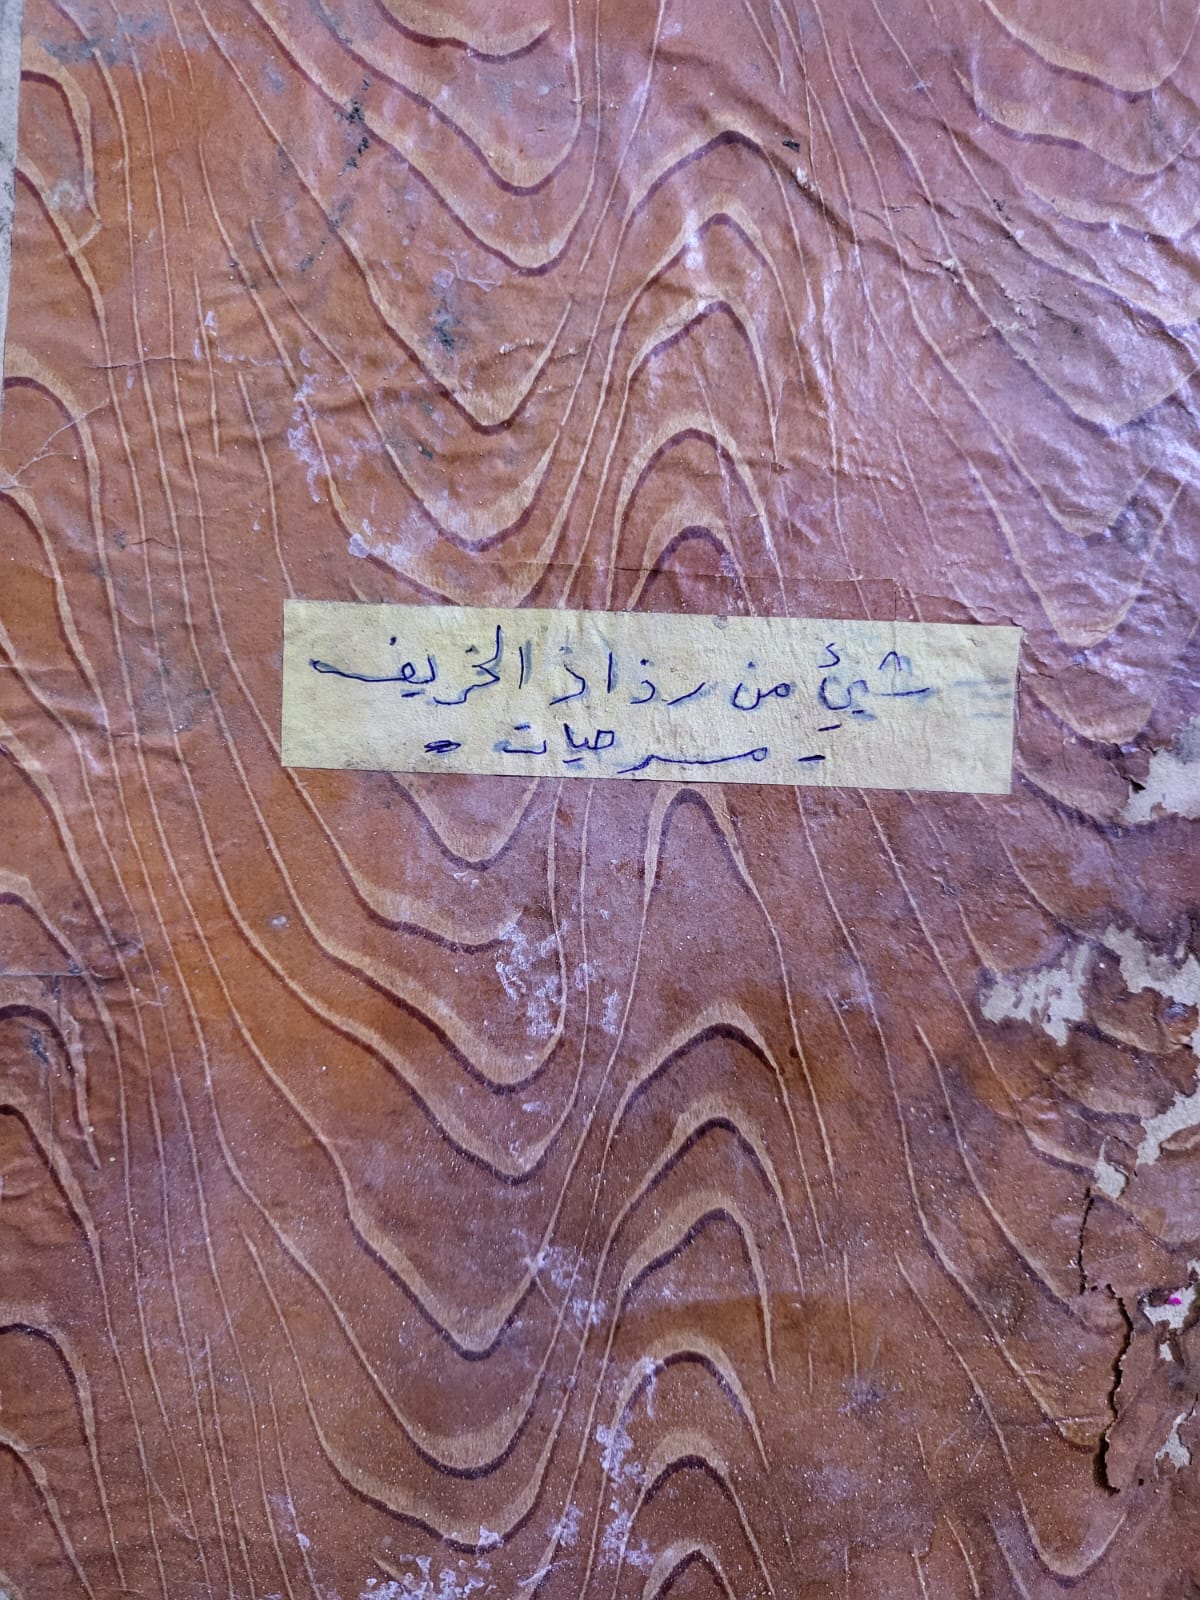 شيئ من رذاذ الخريف
- مسرحيات -